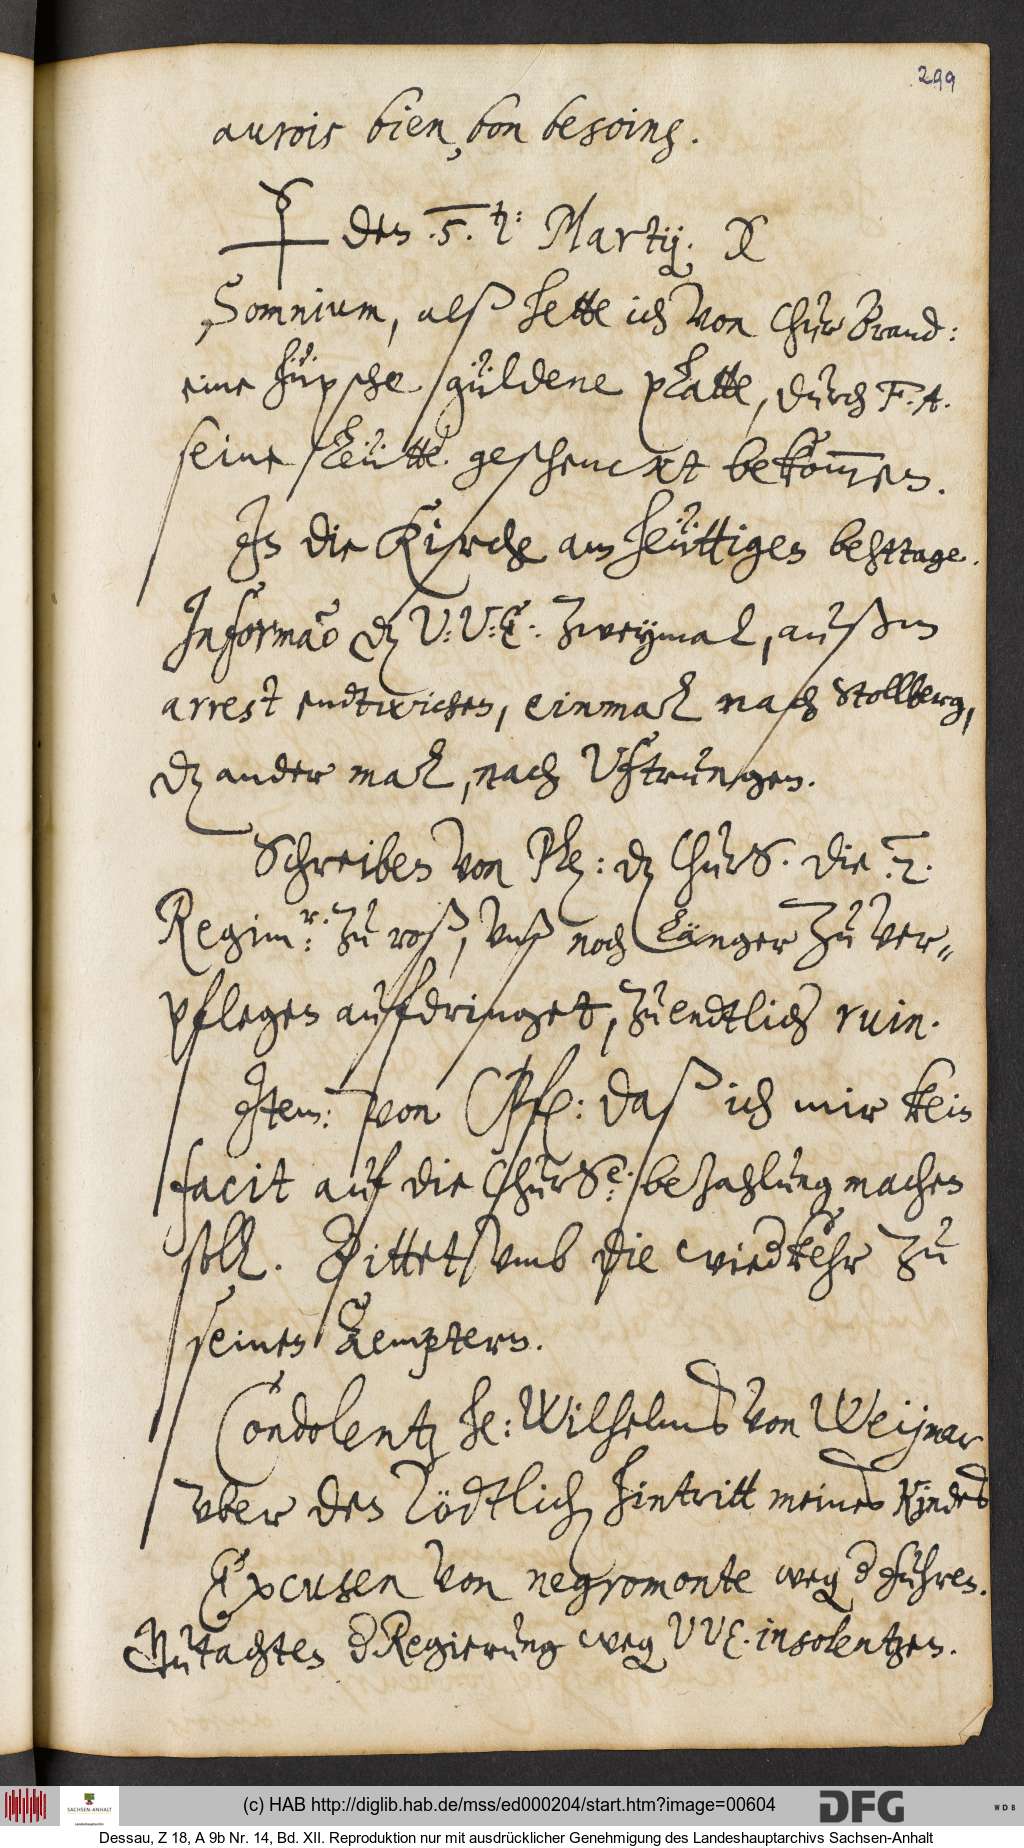 299
aurois bien, bon besoing.
den .5. t: Martij.
Somnium, alß hette ich von ChurBrand:
eine hüpsche güldene platte, durch F. A.
seine leütte. geschenckt bekom̅en.
In die Kirche am heüttigen behttage.
Informa͠o dz V: V: E: zweymal, außm
arrest endtwichen, einmahl nach Stollberg,
dz ander mahl, nach Vftrungen.
Schreiben von Plz: dz ChurS. die .2.
Regim:r. zu roß, vnß noch länger zu ver-
pflegen aufdringet, zu endtlich ruin.
Item: von daß ich mir kein
facit auf die ChurSe: bezahlung machen
soll. Bittet vmb die wiedkehr zu
seinen Aemptern.
Condolentz He: Wilhelms von Weymar
vber den tödtlich hintritt meines Kindes
Excusen von negromonte weg d fuhren.
Gutachten d Regierung weg VVE. insolentzen.
(c) HAB http://diglib.hab.de/mss/ed000204/start.htm?image=00604
SACHSEN-ANHALT
DFG
WDB
Dessau, Z 18, A 9b Nr. 14, Bd. XII. Reproduktion nur mit ausdrücklicher Genehmigung des Landeshauptarchivs Sachsen-Anhalt